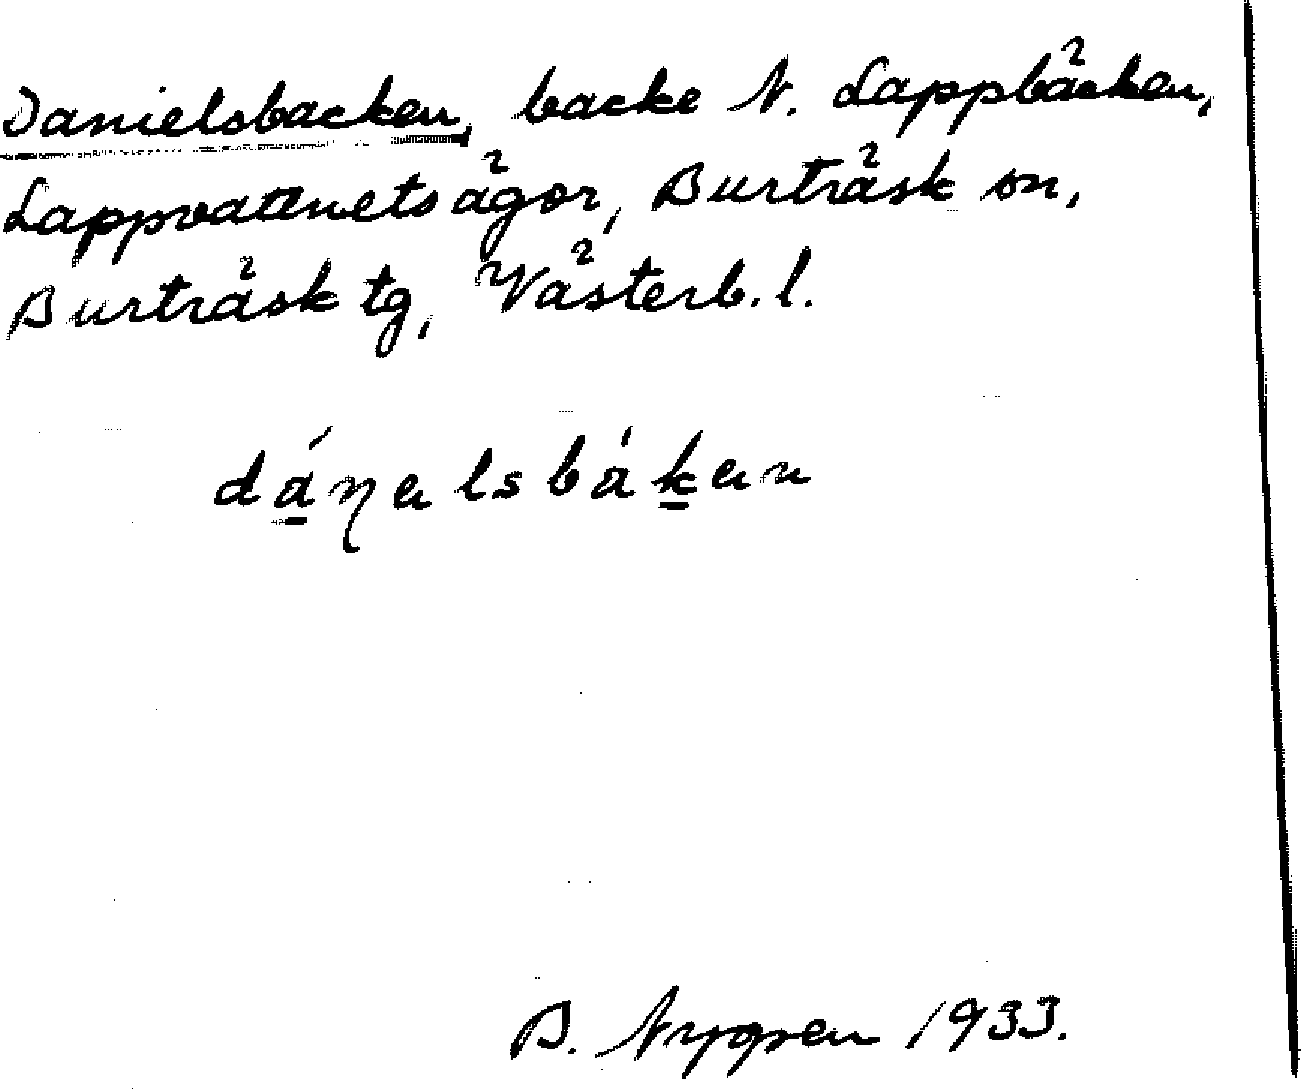 Danielsbacken, backe N. Lappbäcken,
Lappvattnets ägor, Burträsk sn,
Burträsk tg, Västerb. l.
dánəlsbákən
B. Nygren 1933.